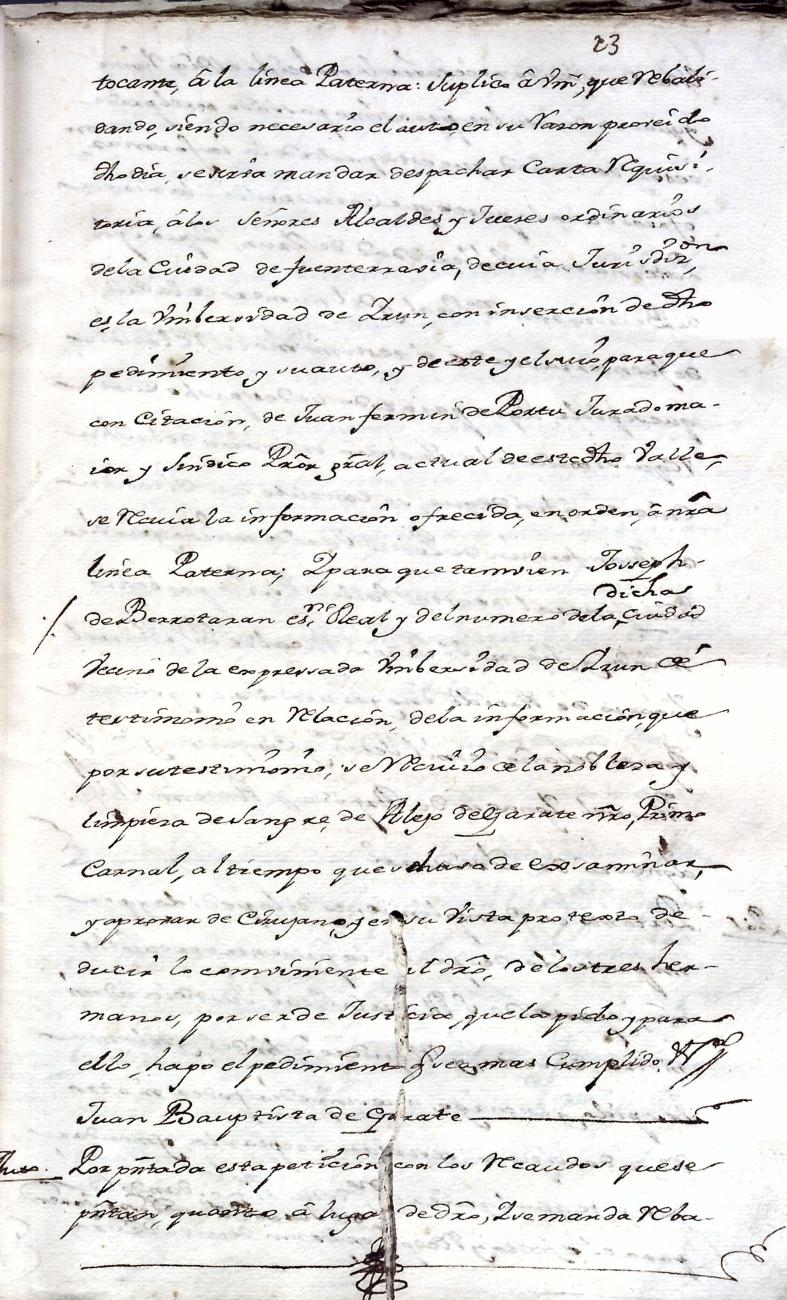 23
tocante, â la linea Paterna: Suplico â Vm, que Rebali-
dando, siendo necesario el auto, en su Razon proveido
dho dia, se sirva mandar despachar Carta Requisi-
toria, â los Señores Alcaldes y Jueses ordinarios
de la Ciudad de fuenterravia, de cuia Jurisdizon,
es, la Vnibersidad de Irun, con insercion de dho
pedimiento y su auto, y de este y el suio, para que
con Citacion, de Juan fermin de Portu Jurado ma-
ior y Sindico Pror gral, actual de este dho Valle,
se Reciva la informacion ofrecida, en orden, â nra
linea Paterna; Y para que tamvien Josseph
de Berrotaran esno Real y del numero de la dicha Ciudad
Vecino de la expressada Vnibersidad de Irun dé
testimonio en Relacion, de la informacion, que
por su testimonio, se Recivio de la nobleza y
limpieza de Sangre, de Alejo de Garate nro, Primo
Carnal, al tiempo que se huso de Exsaminar,
y aprovar de Cirujano, y en su Vista protexto de-
ducir lo comviniente al dro, de los tres her-
manos, por ser de Justicia, que la pido y para
ello, hago el pedimiento q fuez mas Cumplido
Juan Bauptista de Garate
Auto. Por pñtada esta peticion con los Recaudos que se
pñtan, quanto â lugar de dro, Y se manda Reba-